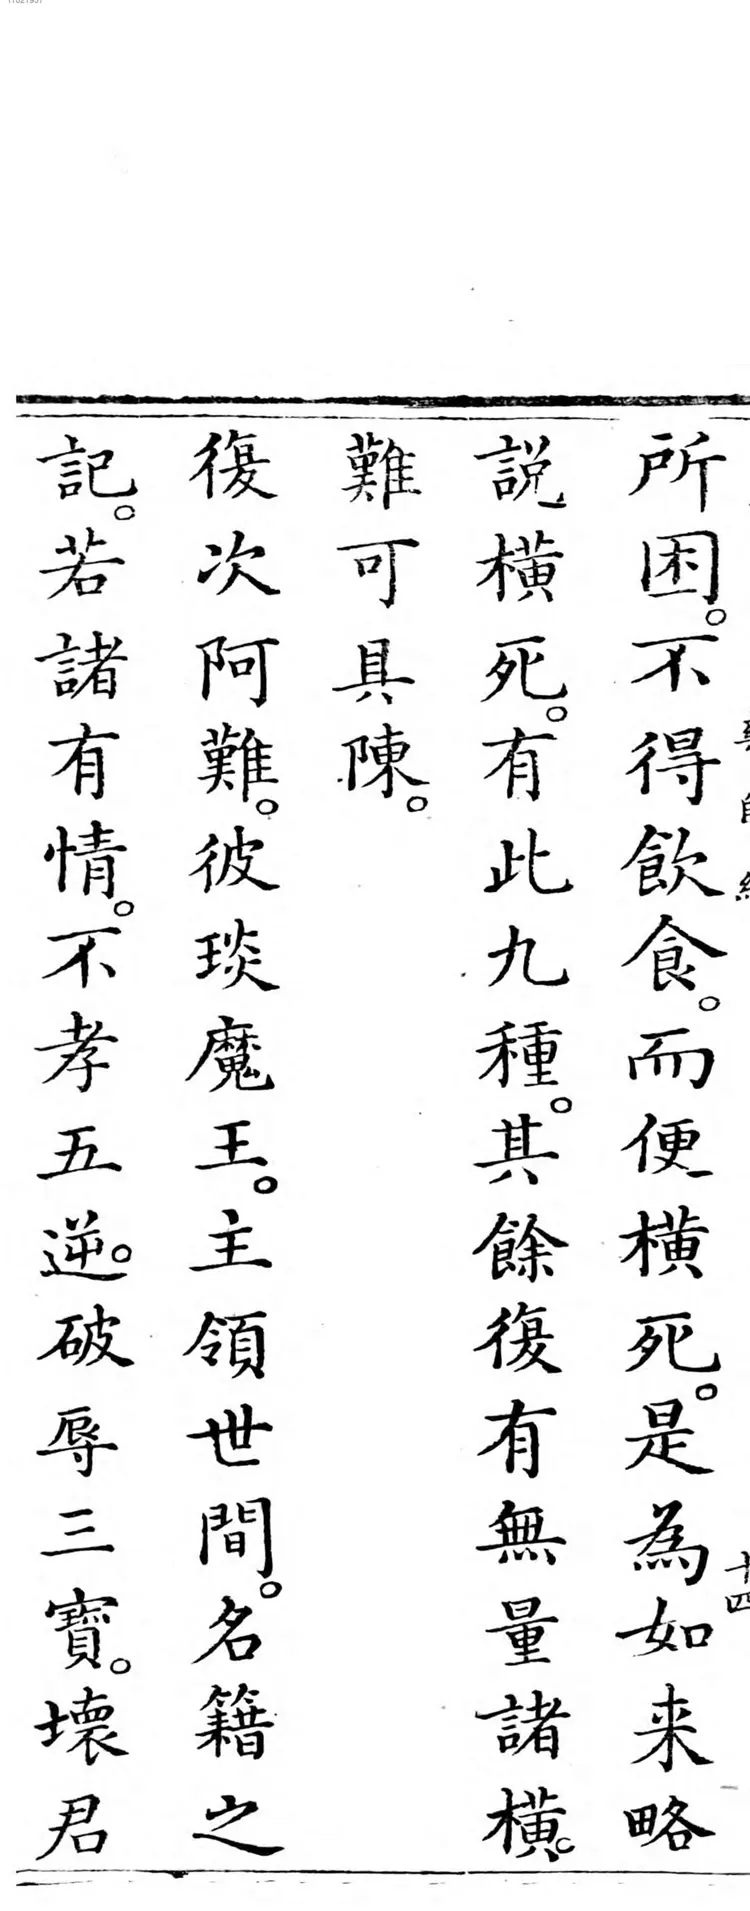 所困。不得飲食。而便橫死。是為如来略
說橫死。有此九種。其餘復有無量諸橫。
難可具陳。
復次阿難。彼琰魔王。主領世間。名籍之
記。若諸有情。不孝五逆。破辱三寶。壞君
十四